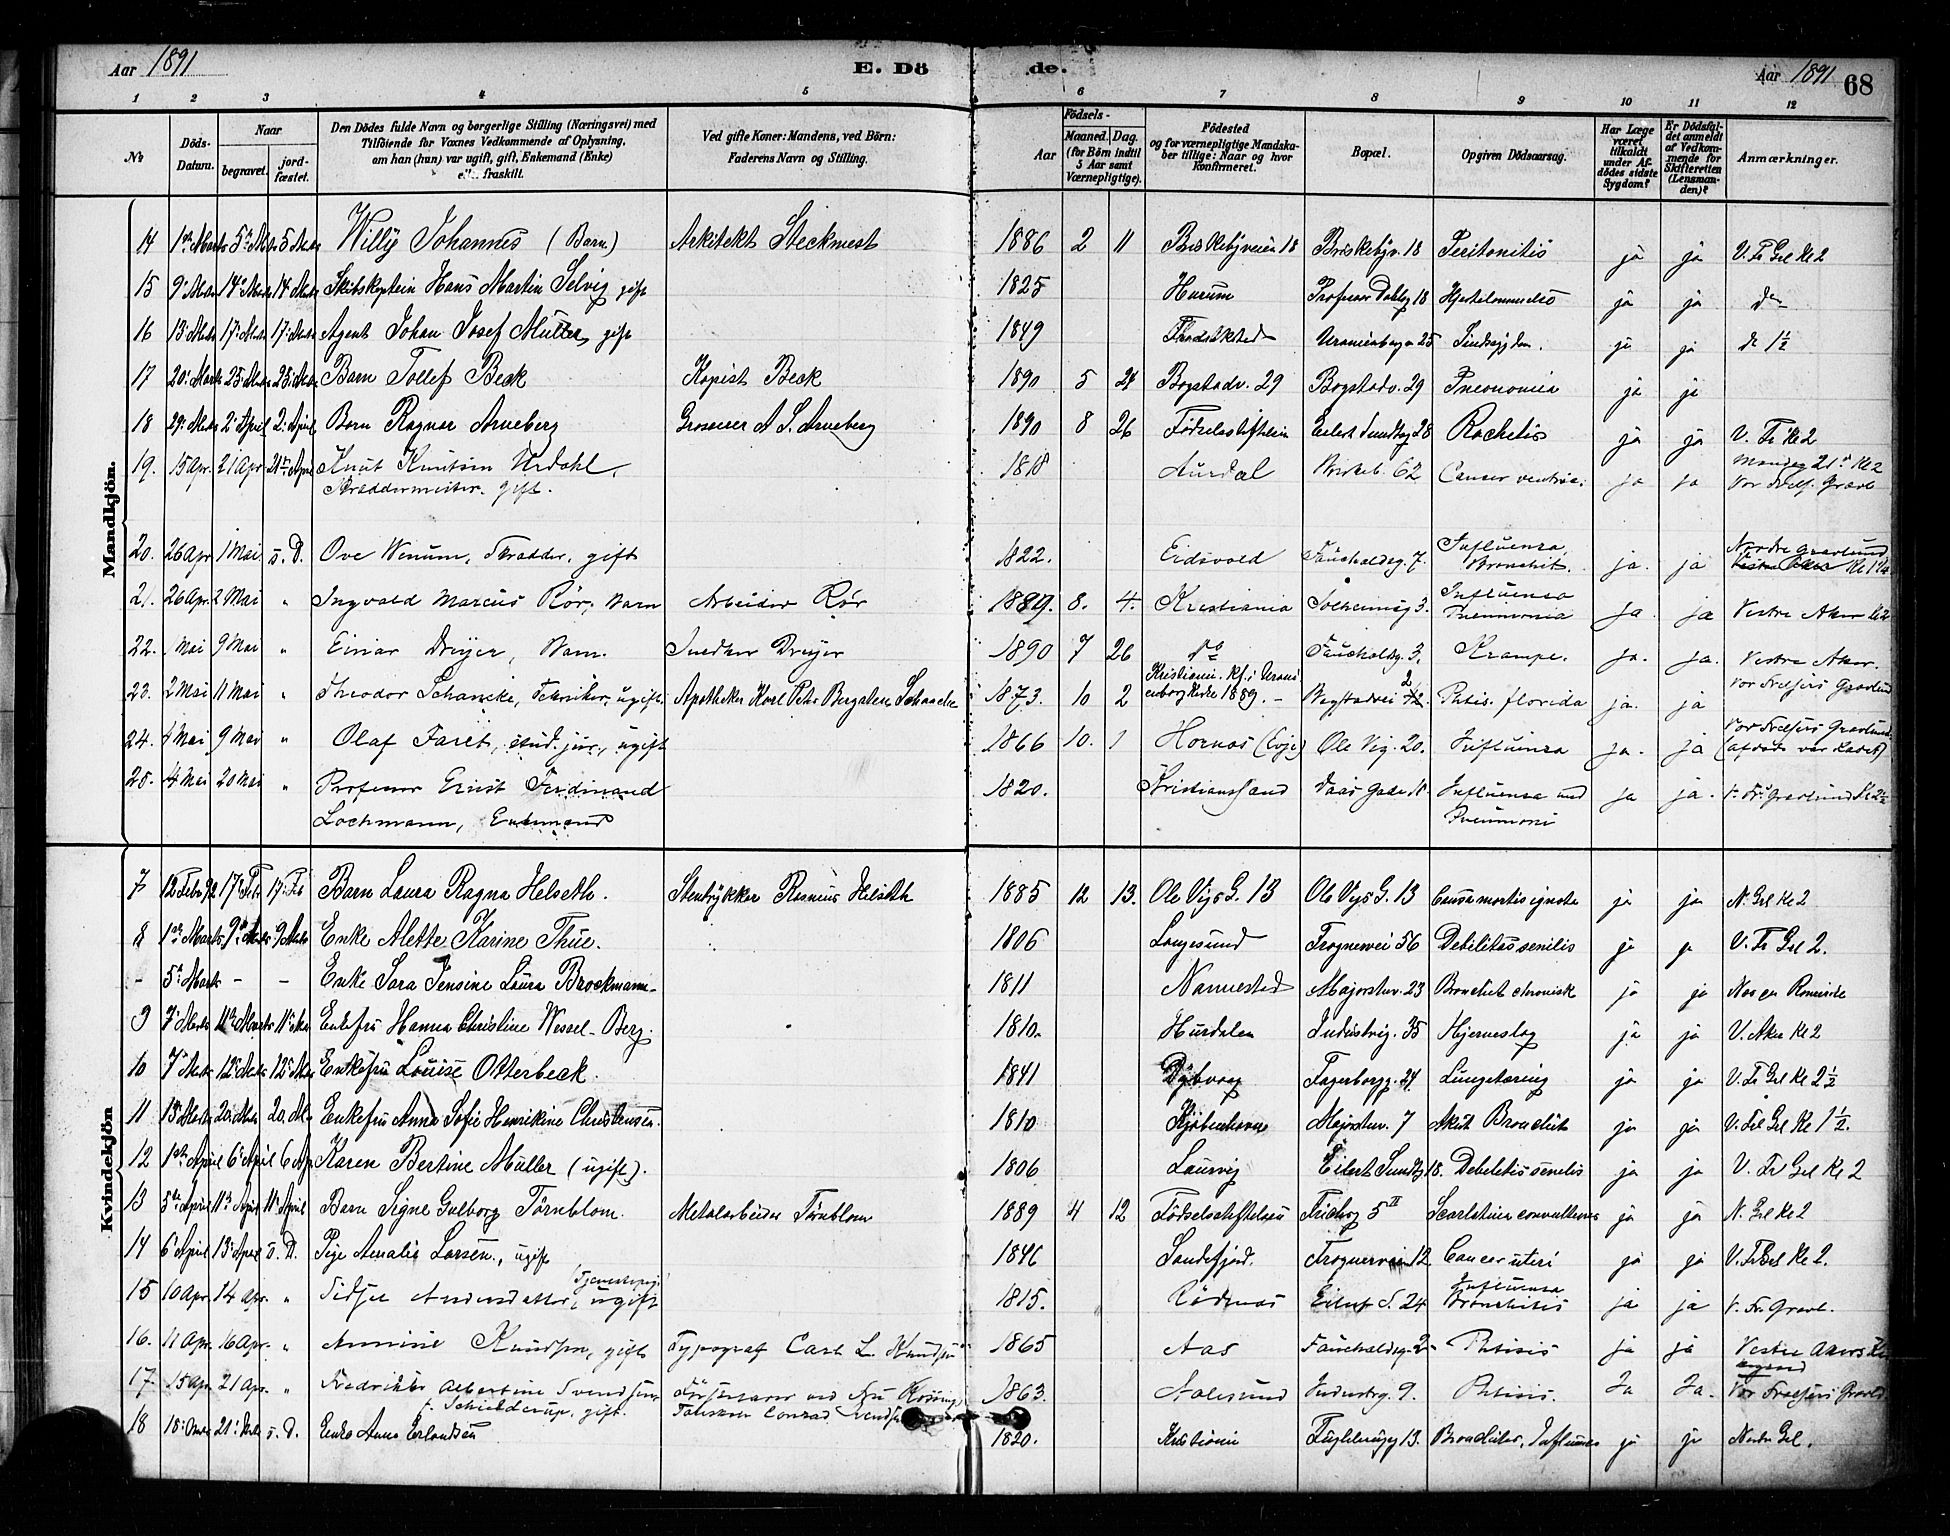 Aar 1891
E. Dö
de.
Aar 1891
68
1 2 3 4 5 6 7 8 9 10 11 12
№
Döds-Datum.
Naar
begravet.
jordfæstet.
Den Dödes fulde Navn og borgerlige Stilling (Næringsvei) med
Tilföiende for Voxnes Vedkommende af Oplysning,
om han (hun) var ugift, gift, Enkemand (Enke)
eller fraskilt.
Ved gifte Koner: Mandens, ved Börn:
Faderens Navn og Stilling.
Födsels-
Aar
Maaned.
Dag.
(for Börn indtil
5 Aar samt
Værnepligtige).
Födested
og for værnepligtige Mandskaber tillige: Naar og hvor
Konfirmeret.
Bopæl.
Opgiven Dödsaarsag.
Har Læge
været
tilkaldt
under Afdödes sidste
Sygdom?
Er Dödsfaldet anmeldt
af Vedkommende for
Skifteretten
(Lensmanden)?
Anmærkninger.
Mandkjön.
14 1ste Marts 5te Mts 5 Mts Willy Johannes (Barn) Arkitekt Steckmest 1886 2 11 Briskebyveien 18 Briskebyv. 18 Peritonitis ja ja V. Fr Grl Kl 2
15 9de Mts 14de Mts 14 Mts Skibskaptein Hans Martin Selvig gift 1825 Hurum Professor Dahlsg 18 ja ja do
16 13 Mts 17 Mts 17 Mts Agent Johan Josef Müller, gift 1849 Uranienborgv 25 Sindssygdom. ja ja 1½
17 20 Marts 25 Mts 25 Mts Barn Tollef Beck Kopist Beck 1890 5 Bogstadv. 29 Bogstadv. 29 Pneumonia ja ja
18 29 Mts 2 April 2 April Barn Ragnar Arneberg Grosserer A S. Arneberg 1890 8 26 Fødselsstiftelsen Eilert Sundtsg 28 Rachitis ja ja V. Fr Kl 2
19. 15 Apr. 21 Apr 21de April Knut Knutsen Urdahl 1818 Aurdal Briskeb. 62 Cancer ventric. ja ja Mandag 21de Kl 2
Skræddermester. gift. Vor Frels. Gravl
20. 26 Apr 1 Mai s. D. Ove Wenum, Skrædder, gift 1822. Eidsvold Faucholdsg. 7 Influenza, Bronchit. ja. ja Nordre Gravlund
21. 26 Apr. 2 Mai " Ingvald Marcus Rör, Barn Arbeider Rör 1889. 8. 4. Kristiania 3. Influenza Pneumonia ja. ja Vestre Aker Kl 2
22. 1 Mai 9 Mai " Einar Dreyer, Barn. Snedker Dreyer 1890 7 26 do Faucholdsg. 3, Krampe. ja. ja. Vestre Aker.
23. 2 Mai 11 Mai " Theodor Schancke, Tekniker, ugift. Apotheker Karl Peter Schancke 1873. 10 2 Kristiania. kf. i Uranienborg Kirke 1889. Bogstadvei Phtis. florida ja. ja Vor Frelsers Gravlund
24. 4 Mai 9 Mai " Olaf Faret, stud. jur., ugift 1866 10. 1 Hornnes (Evje) Ole Vig. 20. Influenza ja. ja Vor Frelsers Gravlund (afdöde var Kadet)
25. 4 Mai 20 Mai " Professor Ernst Ferdinand 1820. Kristianssand Daas Gade Influenza med ja ja. V. Frs Gravlund Kl 2½
Lochmann, Enkemand Pneumoni
Kvindekjön
7 17 Feb 17 Feb Barn Laura Ragna Helseth. Stentrykker Rasmus Helseth 1885 12 13. Ole Vigs G. 13 Ole Vigs G. 13 Causa mortis ignota ja ja N. Grl Kl 2
8 1ste Marts 9de Mts 9 Mts Enke Alette Karine Thue. 1806 Langesund Frognervei 56 Debilitas senilis ja ja V. Fr Grl 2.
- 5te Marts - - Enke Sara Jensine Laura Brockmann. 1811 Nannestad Majorstuv. 23 Bronchit chronisk ja ja
9 7 Mts 11te Marts 11 Mts Enkefru Hanna Christine Wessel-Berg. 1810. Hurdalen Industrig. 35 Hjerneslag ja ja V. Aker Kl 2
10 7 Mts 12te Mts 12te Mts Enkefru Louise Otterbeck. 1841 Dybvaag Fagerborgg. 24 Lungetæring ja ja V. Fr Grl Kl 2½
11 Mts 20 Mts 20 Mts Enkefru Anna Sofie Henrikine Christensen. 1810 Kjöbenhavn Majorstuv. 7 Akut Bronchit ja ja V. Frl Grl Kl 1½.
12 1ste April 6 April 6 Ap Karen Bertine Müller (ugift). 1806 Laurvig Eilert Sundtsg 18. Debilitas senilis ja ja V. Fr Grl Kl 2
13 5te April 11te April 11 April Barn Signe Gulborg Törnblom. Metalarbeider Törnblom 1889 4 12 Fødselsstiftelsen 5 II Scarlatina convulsiones ja ja N. Grl Kl 2
14 6 April 13 April s. D. Pige Amalie Larsen., ugift 1846 Sandefjord. Frognervein 12 Cancer uteri ja ja V. Fr Grl Kl 2.
15 10 Apr. 14 Apr. " Sidsel Andersdatter, (Tjenestepige) ugift 1815. Rödenæs Eilert S. 24 Influenza Bronchitis ja ja V. Fr. Gravl.
16. 11 Apr. 16 Apr. " Annine Knudsen, gift Typograf Carl L. Knudsen 1865 Aas Faucholdsg. 2 Phtisis ja ja Vestre Akers Kl
17 15 Apr. 21 Apr. " Fredrikke Albertine Svendsen 1863. Aalesund Industrig. 9. Phtisis. Ja Ja. Vor Frelsers Gravl
f. Schjelderup, gift. Conrad Svendsen
18 18 21 s. D. Enke Anne Erlandsen 1820. Kristiania 13. Bronchitis, Influenza ja ja Nordre Grl.